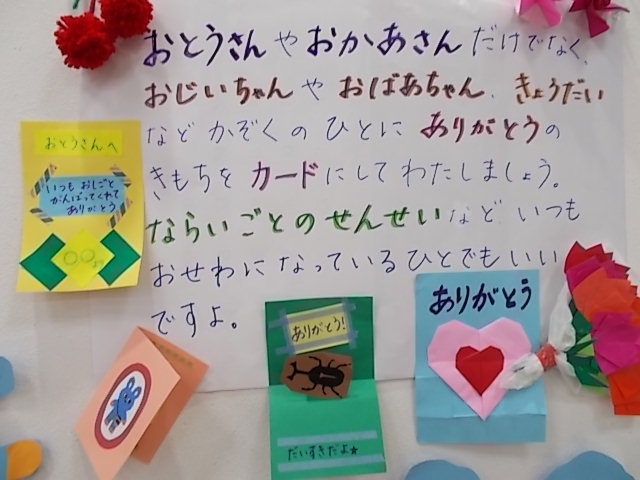 おとうさんやおかあさんだけでなく、
おじいちゃんやおばあちゃん、きょうだい
などかぞくのひとにありがとうの
きもちをカードにしてわたしましょう。
ならいごとのせんせいなど、いつも
おせわになっているひとでもいい
ですよ。
おとうさんへ
いつもおしごと
がんばってくれて
ありがとう
○○より
ありがとう!
だいすきだよ★
ありがとう